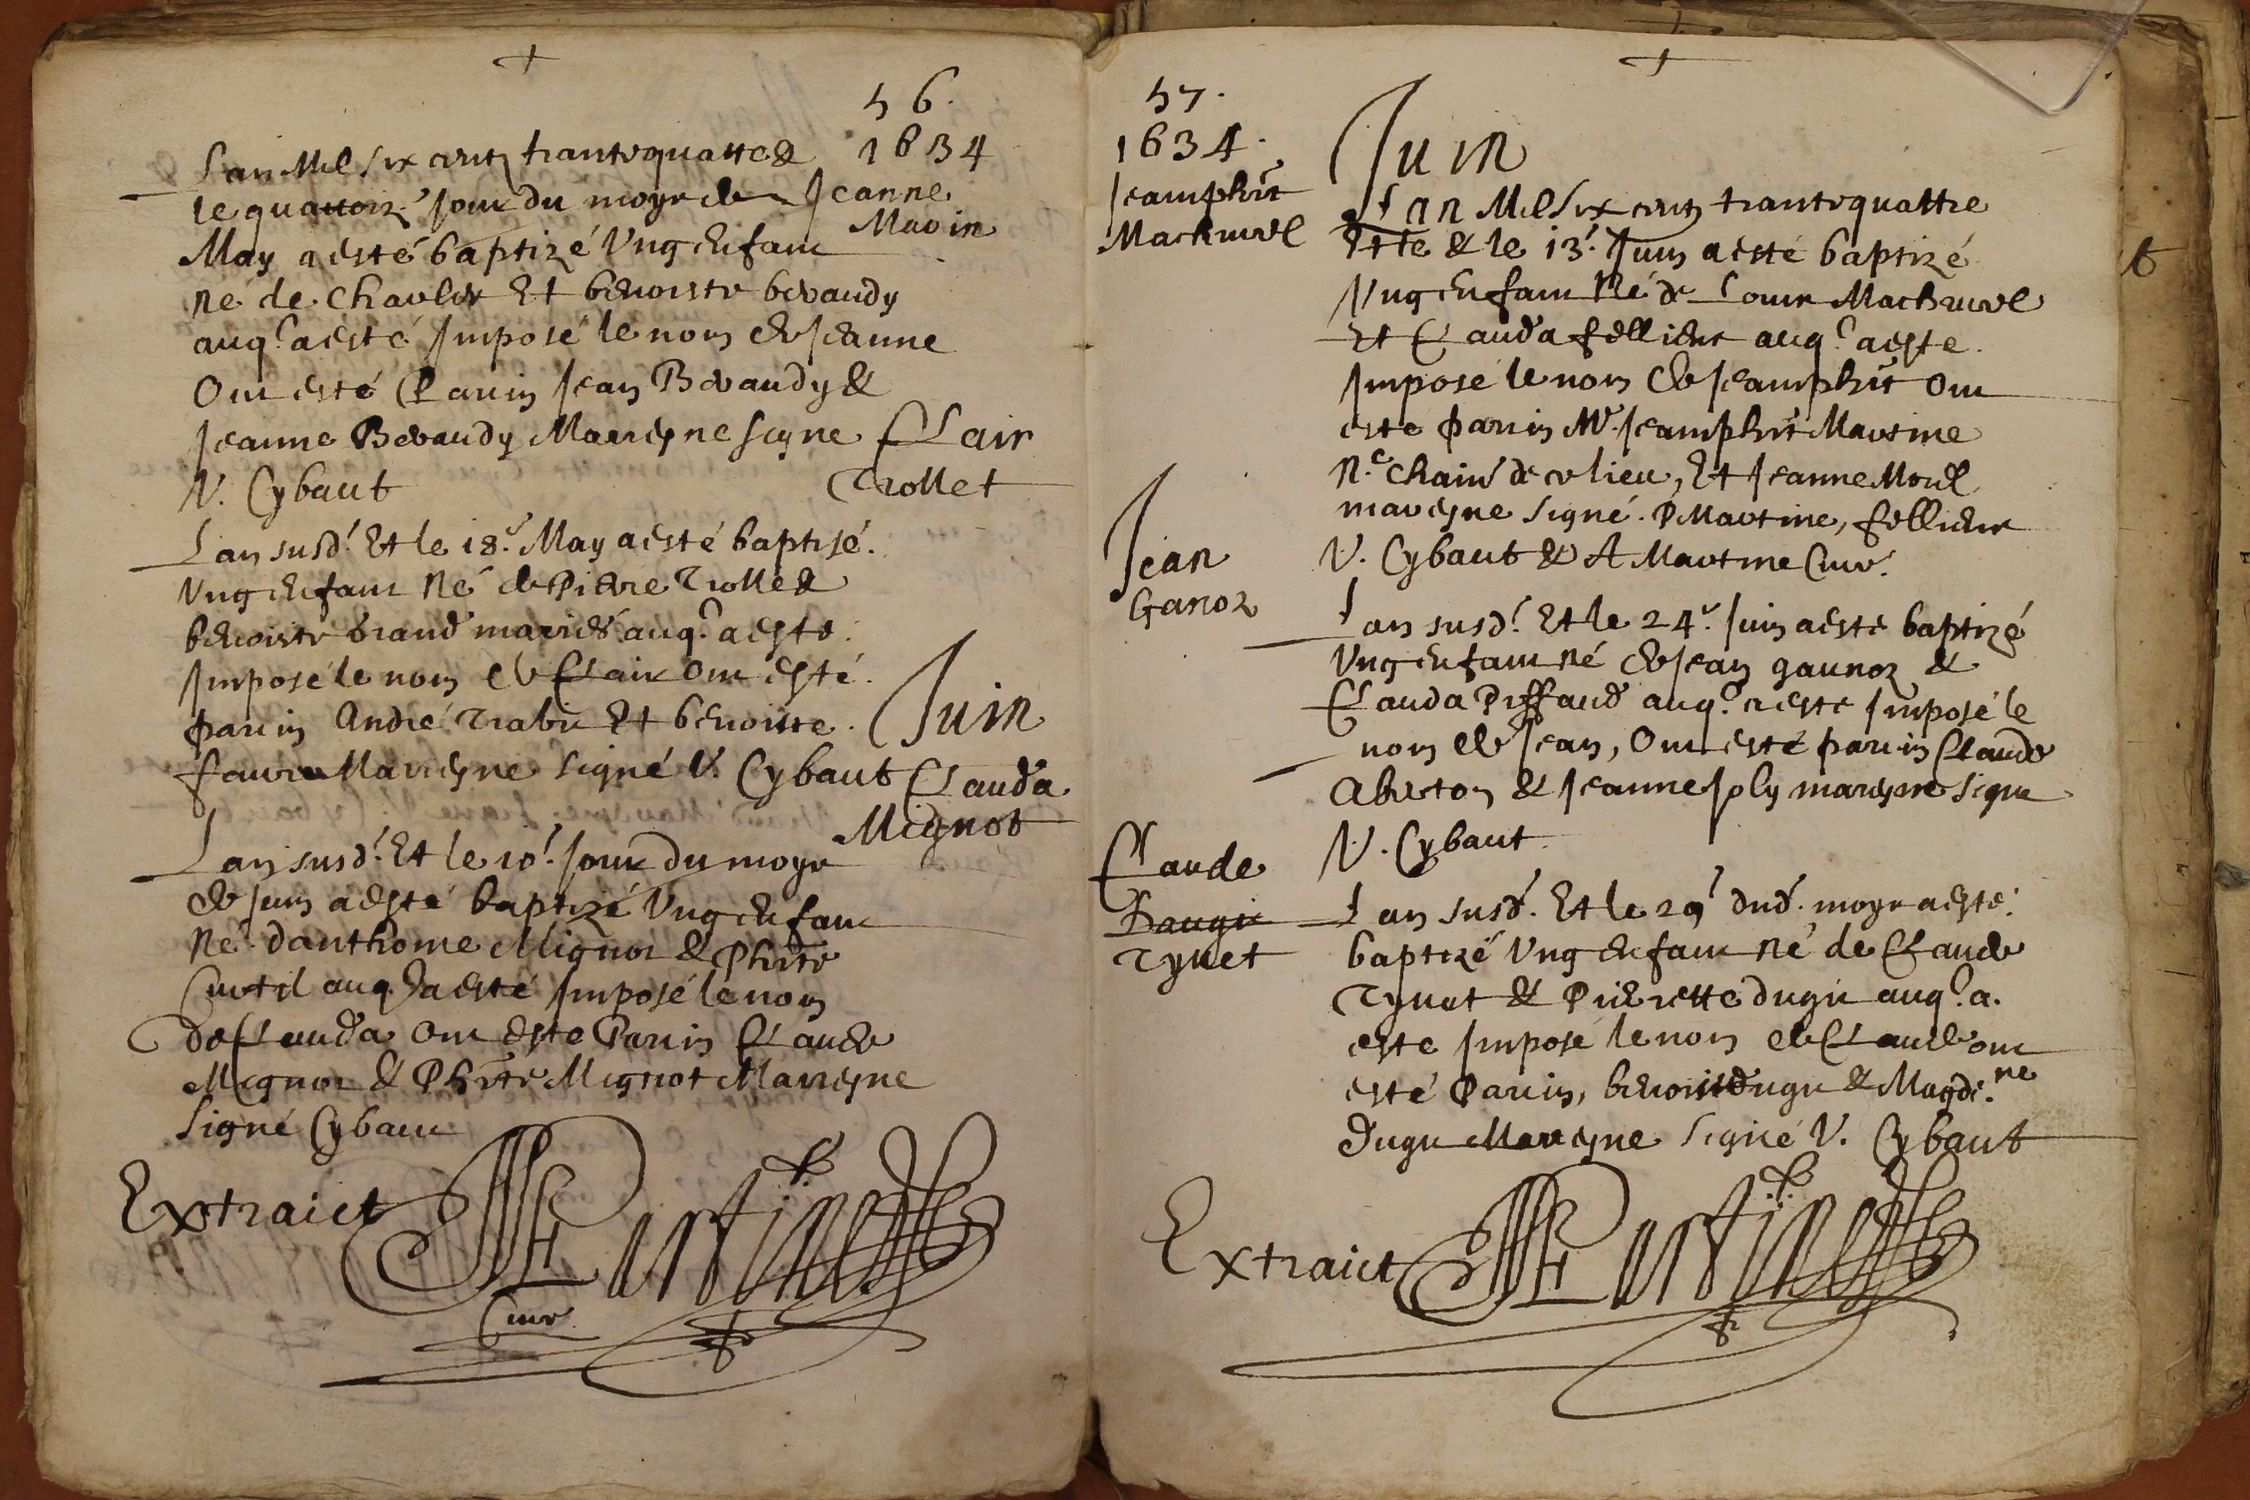 56.
1634
Lan Mil six centz trante quatte &
le quattorze jour du moys de
Jeanne
Mavin
May a esté baptizé Ung Enfant
né de Charles Et benoiste bevaudy
auql a esté Imposé le nom de Jeanne
Ont esté Parin Jean Bevaudy &
Jeanne Bevaudy Mareyne signe
V. Cybaut
Clair
Trollet
Lan susd. Et le 18e May a esté baptisé.
Ung Enfant Né de Pierre Trollet &
benoiste brand mariés auql a esté
Imposé le nom de Clair Ont esté.
parin André Trabu Et benoiste.
faure Mareyne signé V. Cybaut
Juin
Clauda
Mignot
Lan susd. Et le 10e Jour du moys
de Juin a esté baptizé Ung Enfant
Né danthome Mignot & Phrte
Curtil auql a esté Imposé le nom
de Clauda Ont esté Parin Claude
Mignot & Phrte Mignot Mareyne
signé Cybaut
Extraict
Cure
57.
1634.
Jeamphrt
Machurel
Juin
Lan Mil Six centz trante quattre
Et le & le 13e Juin a esté baptizé
Ung Enfant Né de Louis Machurel
Et Clauda felliens auql a este.
Imposé le nom de Jeamphrt Ont
este parin Mr. Jeamphrt Martine
Nre Chaine de ce lieu, Et Jeanne Morel
mareyne signé. P Martine, felliens
V. Cybaut & A Martine Cure.
Jean
Ganoz
Lan susd. Et le 24e Juin a esté baptizé
Ung Enfant né de Jean gaunoz &
Clauda Piffaud auql a este Imposé le
nom de Jean, Ont esté parin Claude
Abreton & Jeanne Joly mareyne signe
V. Cybaut
Claude
Daugir
Tynet
Lan susd. Et le 29e dud. moys a esté.
baptizé Ung Enfant né de Claude
Tynet & Pierrette dugir auql a.
este Imposé le nom de Claude ont
esté Parin, benoist dugir & Magdne
Dugir Mareyne signé V. Cybaut
Extraict